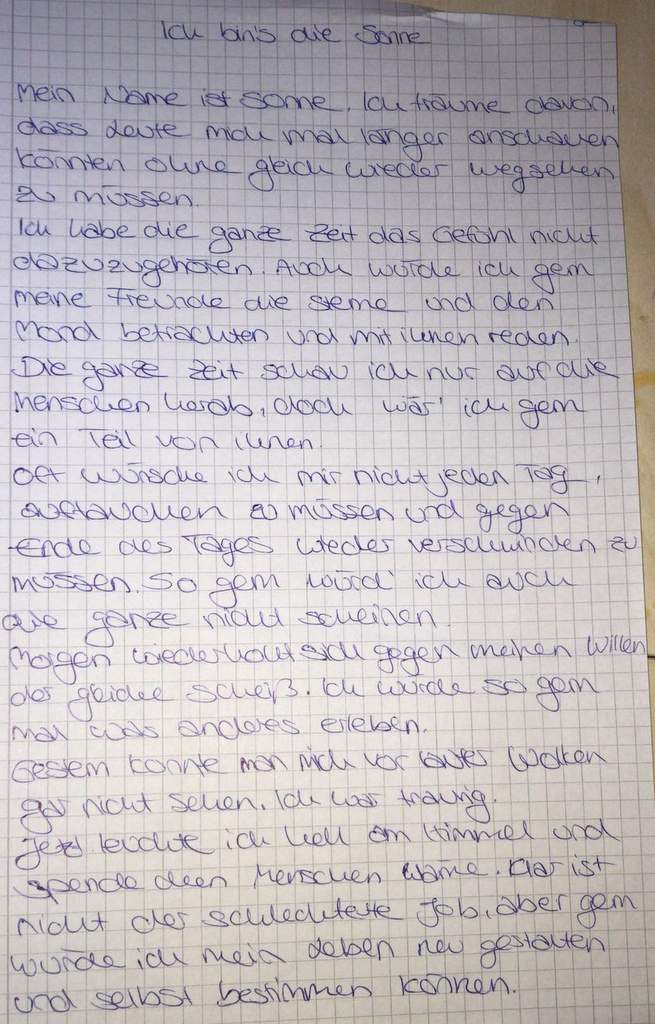 Ich bin's die Sonne
Mein Name ist Sonne. Ich träume davon,
dass Leute mich mal länger anschauen
könnten ohne gleich wieder wegsehen
zu müssen.
Ich habe die ganze Zeit das Gefühl nicht
dazuzugehören. Auch würde ich gern
meine Freunde die Sterne und den
Mond betrachten und mit ihnen reden.
Die ganze Zeit schau ich nur auf die
Menschen herab, doch wär' ich gern
ein Teil von ihnen.
Oft wünsche ich mir nicht jeden Tag,
auftauchen zu müssen und gegen
Ende des Tages wieder verschwinden zu
müssen. So gern würd' ich auch
die ganze nicht scheinen.
Morgen wiederholt sich gegen meinen Willen
der gleiche Scheiß. Ich würde so gern
mal was anderes erleben.
Gestern konnte man mich vor lauter Wolken
gar nicht sehen. Ich war traurig.
Jetzt leuchte ich hell am Himmel und
spende den Menschen Wärme. Klar ist
nicht der schlechteste Job, aber gern
würde ich mein Leben neu gestalten
und selbst bestimmen können.